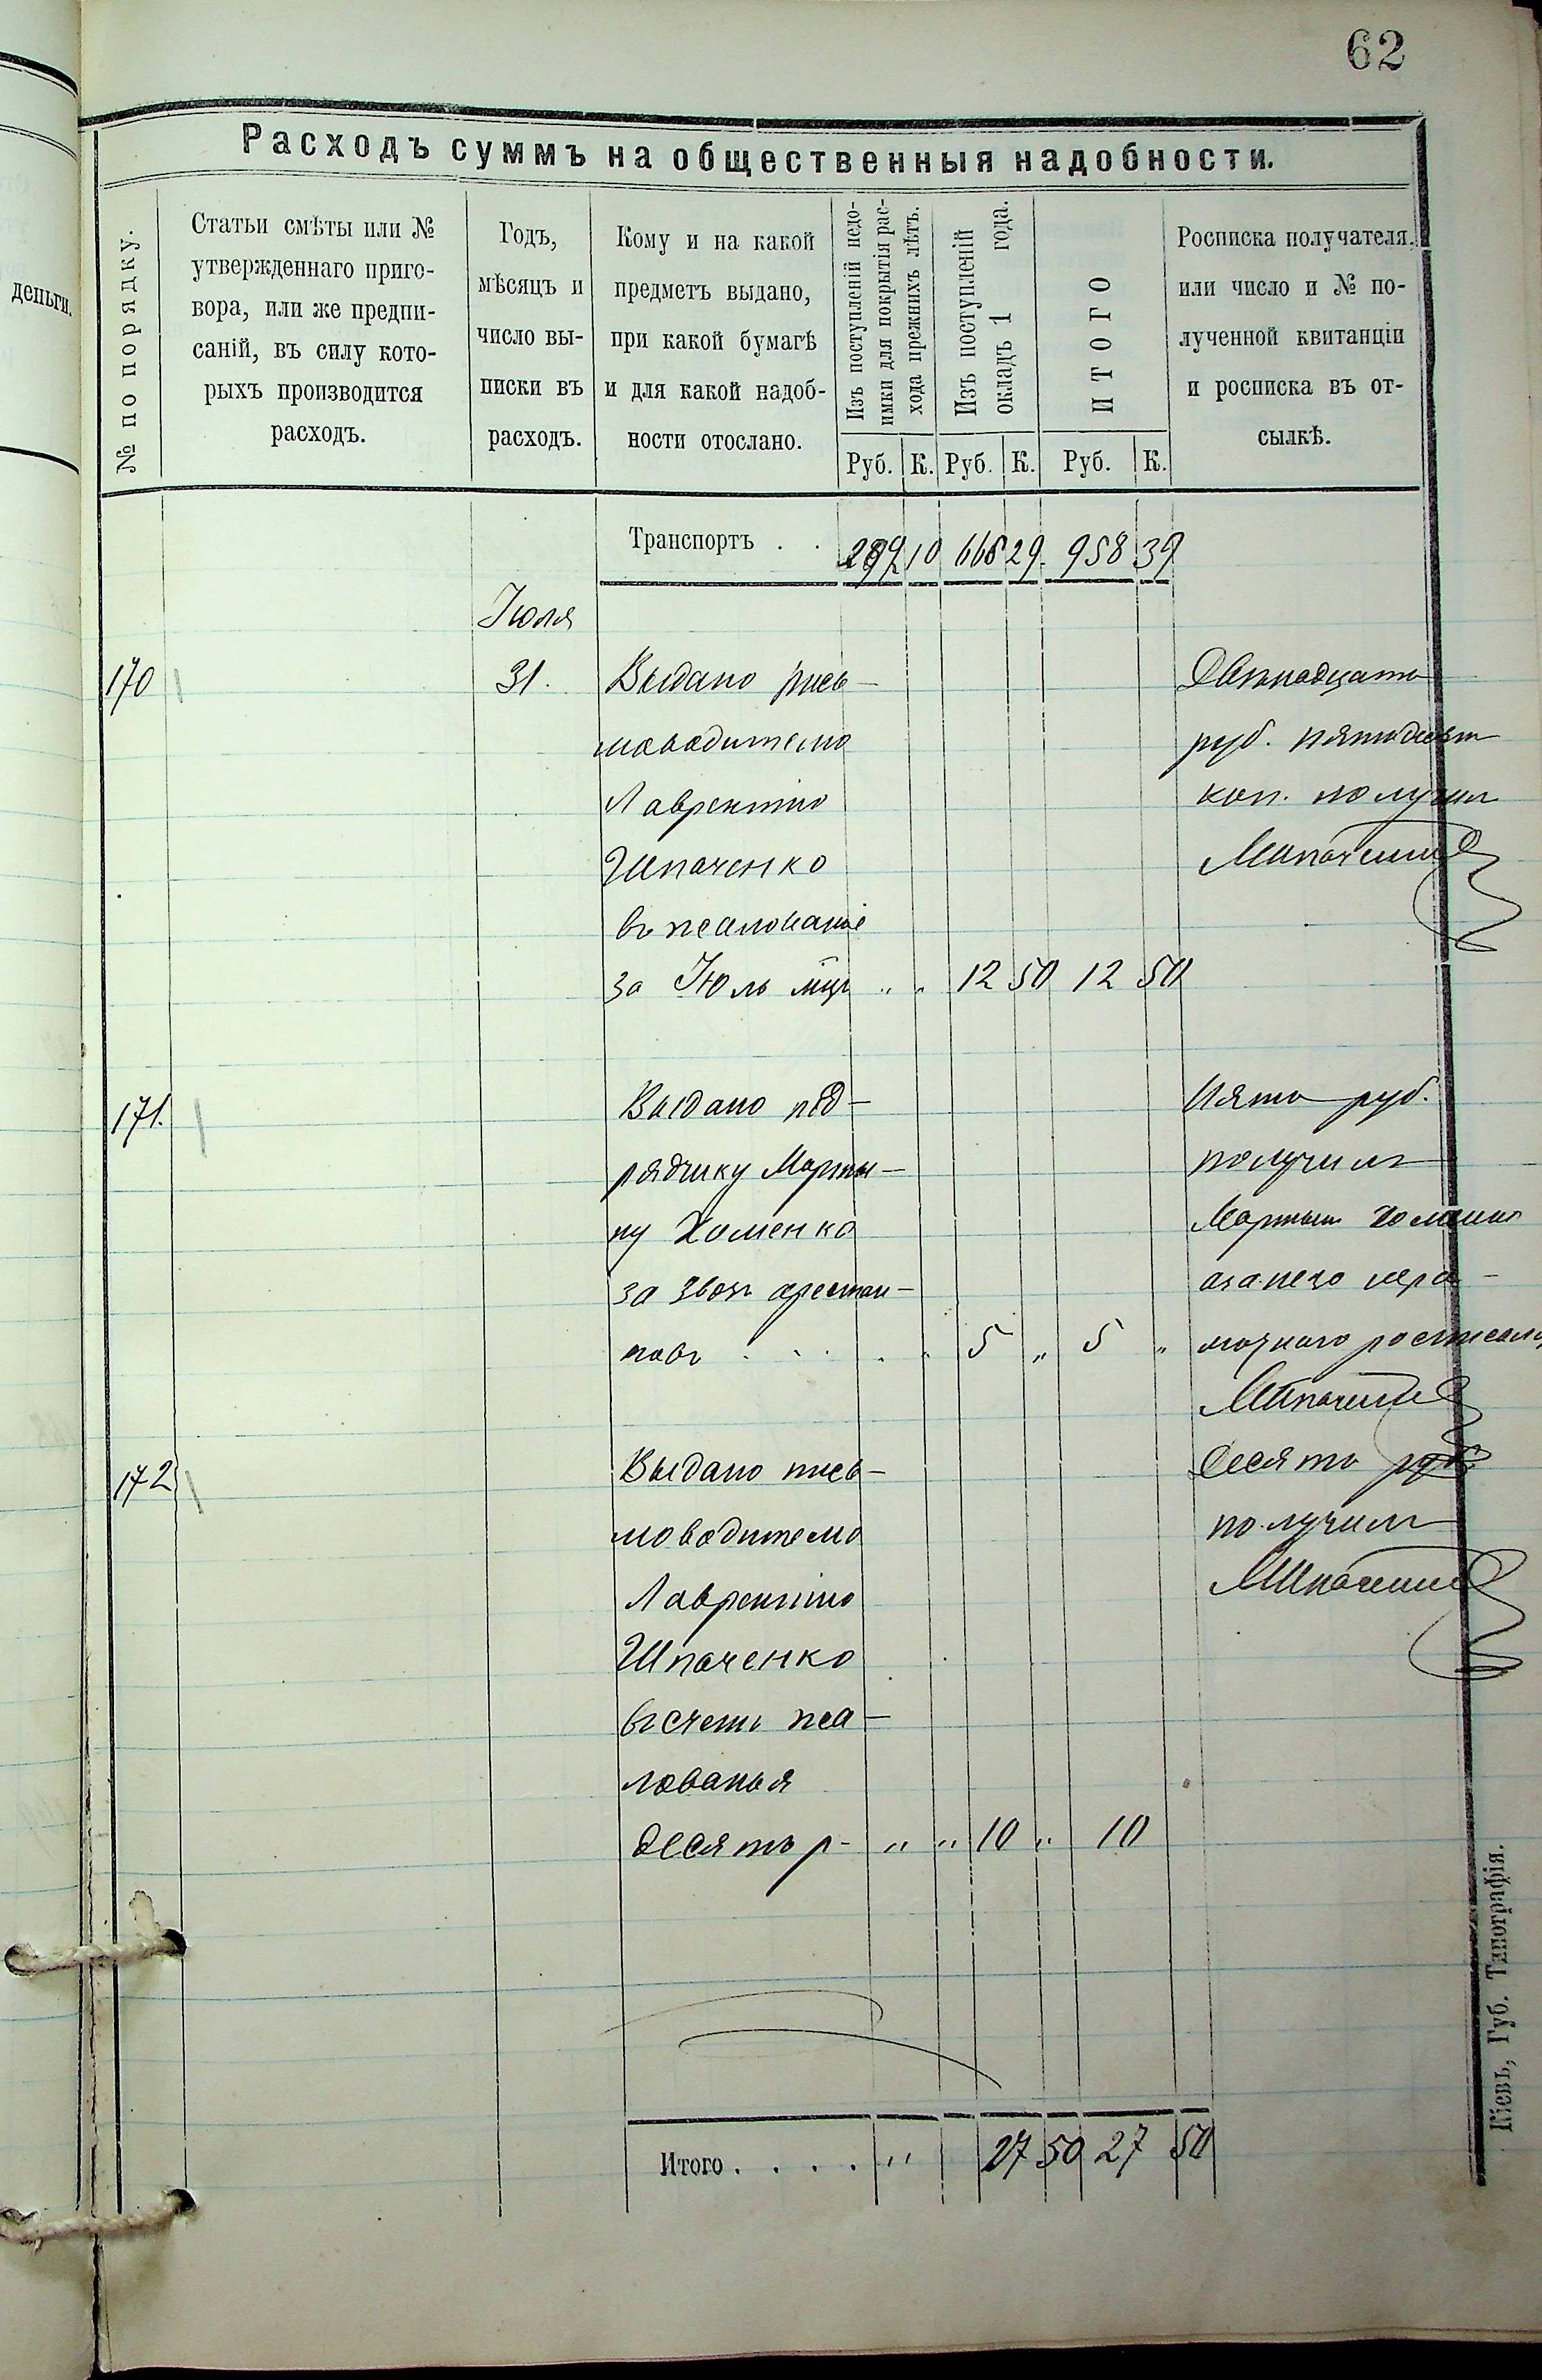 62
деньги.
Расходъ суммъ на общественныя надобности.
№ по порядку.
Статьи смѣты или №
утвержденнаго приго-
вора, или же предпи-
саній, въ силу кото-
рыхъ производится
расходъ.
Годъ,
мѣсяцъ и
число вы-
писки въ
расходъ.
Кому и на какой
предметъ выдано,
при какой бумагѣ
и для какой надоб-
ности отослано.
Изъ поступленій недо-
имки для покрытія рас-
хода прежнихъ лѣтъ.
Изъ поступленій
окладъ 1 года.
ИТОГО
Росписка получателя,
или число и № по-
лученной квитанціи
и росписка въ от-
сылкѣ.
Руб. К. Руб. К. Руб. К.
Транспортъ . . 10 29 958 39
Іюля
170 31. Выдано пись-
моводителю
Лаврентію
Шпаченко
въ жалованіе
за Іюль мцъ " " 12 50 12 50
Двѣнадцать
руб. пятьдесят
коп. получил
171. Выдано под-
рядчику Марты-
ну Хоменко
за звозъ арестан-
товъ . . . . " 5 " 5 "
Пять руб.
получилъ
Мартын Хоменко
а за него негра-
мотного
172 Выдано пись-
моводителю
Лаврентію
Шпаченко
въ счетъ жа-
лованья
десять р- " " 10 " 10
Десять руб.
получилъ
Итого . . . . " 27 50 27 50
Кіевъ, Губ. Типографія.